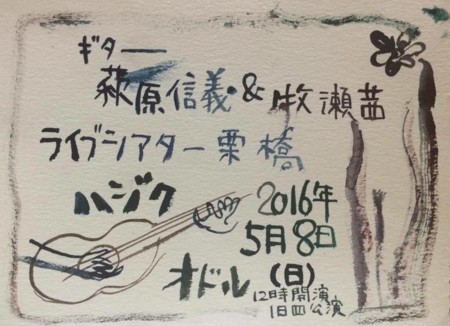 ギター
萩原信義&牧瀬茜
ライブシアター栗橋
ハジク
2016年
5月8日
オドル
(日)
12時開演
1日四公演